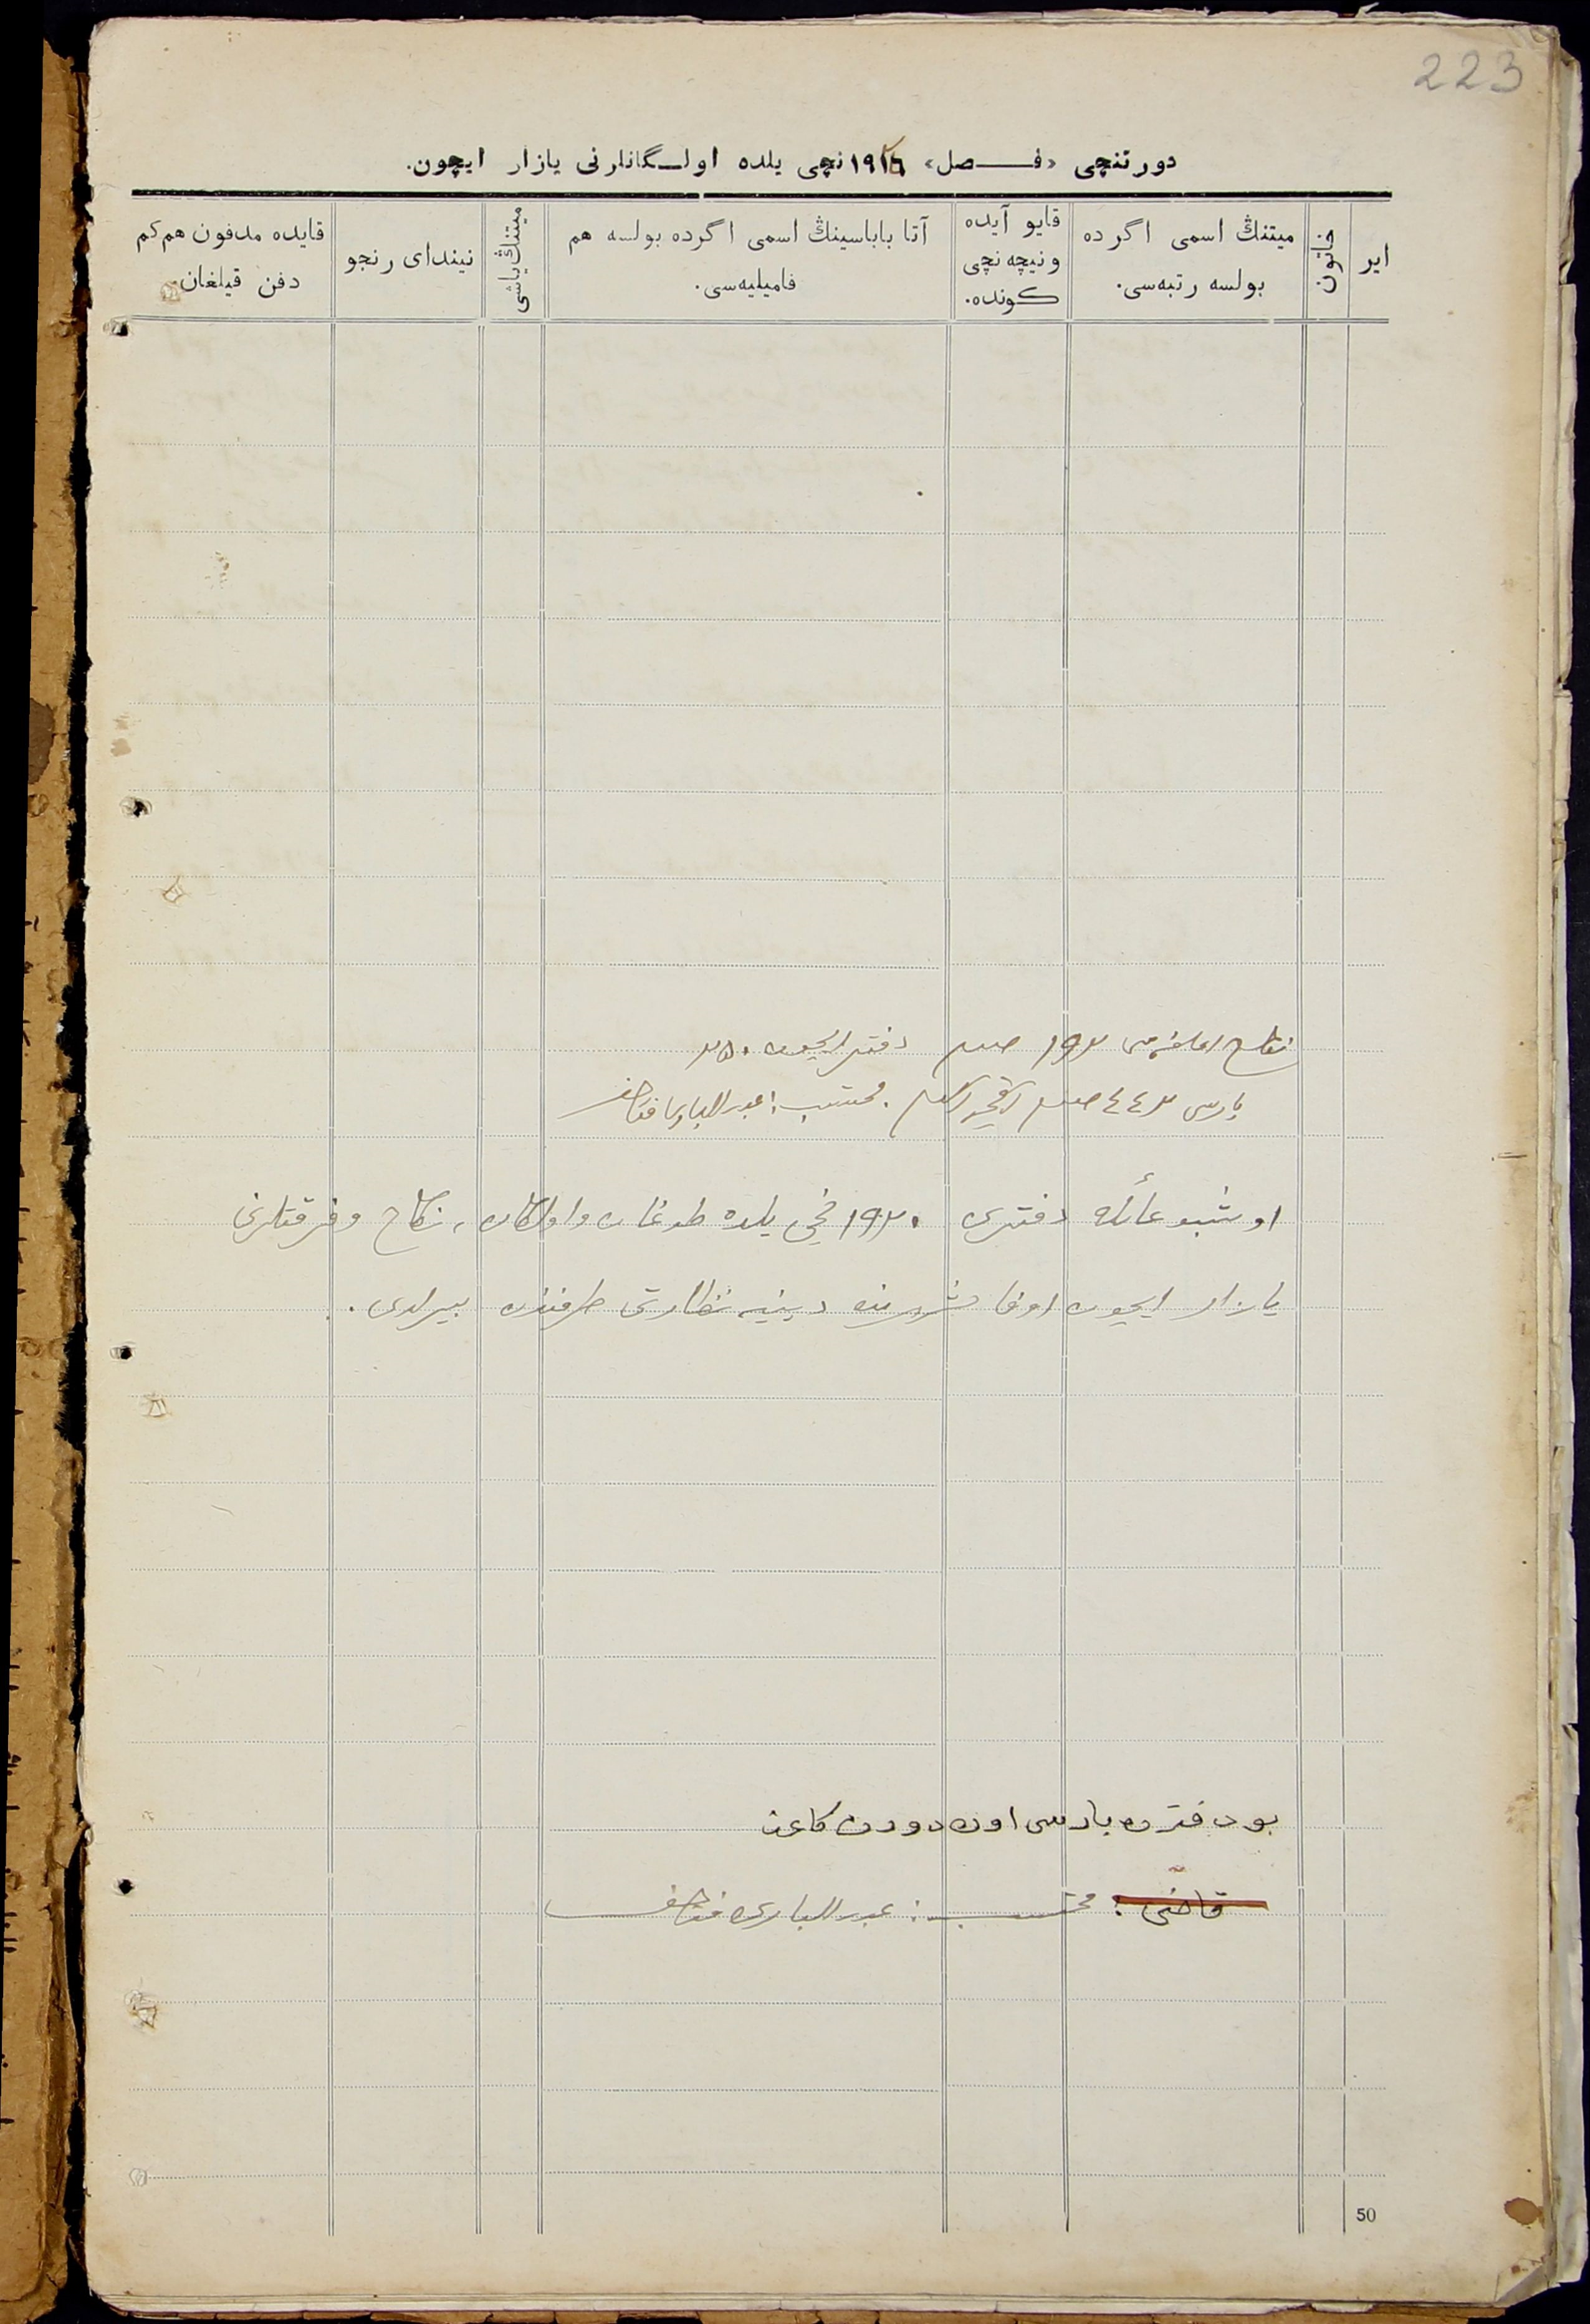 223
دورتنچی «فـــصل» ١٩١٦ نچی یلده اولـگانلرنی یازار ایچون.
ایر
خاتون
میتنڭ اسمی اگر ده
بولسه رتبه‌سی.
قایو آیده
ونیچه نچی
کونده.
آتا باباسینڭ اسمی اگرده بولسه هم
فامیلیه‌سی.
میتنڭ یاشی
نیندای رنجو
قایده مدفون هم کم
دفن قیلغان.
نکاح ١٩٢ صوم دفتر ایچون ٢٥٠
بارسی ٤٤٢ صوم محتسب: عبدالباری فتاحف
اوشبو عائله دفتری ١٩٢٠ نچی یلده طوغان واولگان، نکاح وفرقتلرنی
یازار ایچون اوفا شهرنده دینیه نظارتی طرفندن بیرلدی.
بو دفترده بارسی اون دورت کاغذ
قاضی: محتسب: عبدالباری فتاحف
50